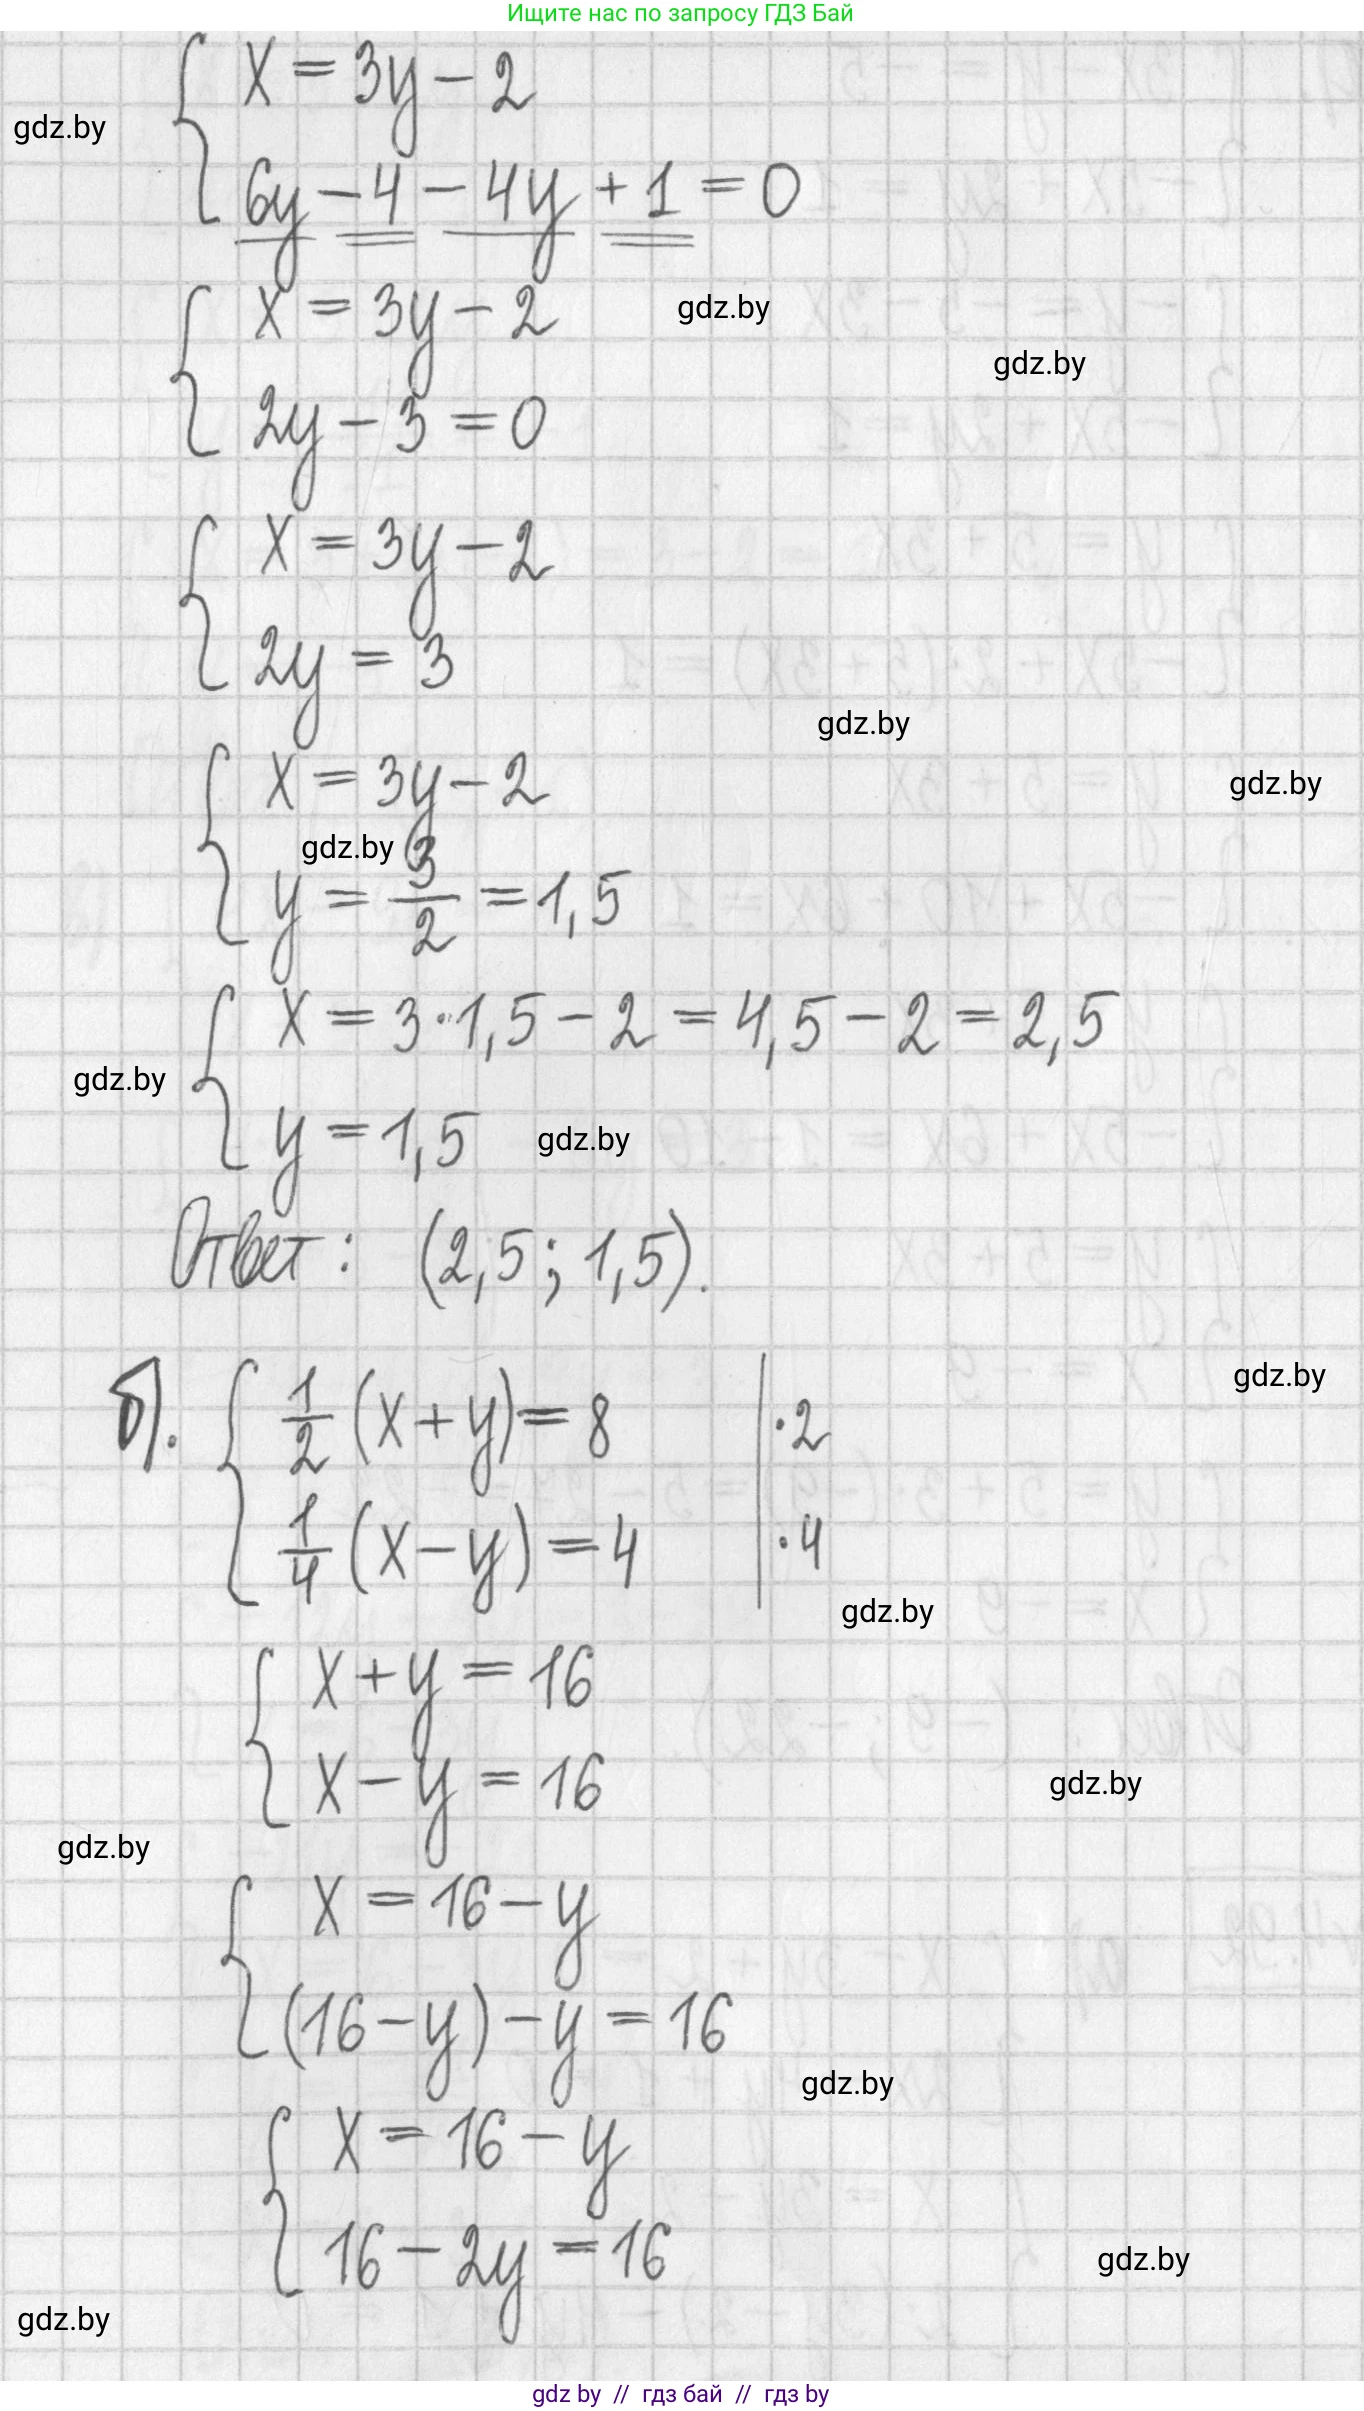 Ищите нас по запросу ГДЗ Бай
x = 3y − 2
gdz.by
6y − 4 − 4y + 1 = 0
x = 3y − 2
gdz.by
gdz.by
2y − 3 = 0
x = 3y − 2
2y = 3
gdz.by
x = 3y − 2
gdz.by
gdz.by
y = 3/2 = 1,5
x = 3 · 1,5 − 2 = 4,5 − 2 = 2,5
gdz.by
y = 1,5
gdz.by
Ответ: (2,5; 1,5).
gdz.by
б). 1/2 (x + y) = 8 | · 2
1/4 (x − y) = 4 | · 4
gdz.by
x + y = 16
x − y = 16
gdz.by
gdz.by
x = 16 − y
(16 − y) − y = 16
gdz.by
x = 16 − y
16 − 2y = 16
gdz.by
gdz.by
gdz by // гдз бай // гдз by